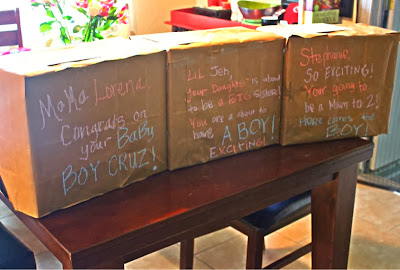 MaMa Lorena,
Congrats on
your Baby
BOY CRUZ!
Lil Jen,
Your Daughter is about
to be a BIG Sister!
You are about to
have A BOY!
EXCITING!
Stephanie,
SO EXCITING!
Your going to
be a Mom to 2!
HERE comes the
BOY!